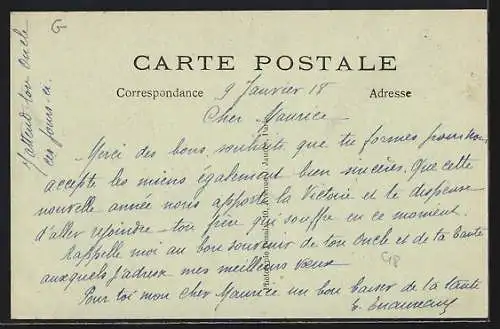 G
J'attend ton oncle
ces jours-ci
CARTE POSTALE
Correspondance
Adresse
9 Janvier 18
Cher Maurice
Merci des bons souhaits que tu formes pour nous
accepte les miens également bien sincères. Que cette
nouvelle année nous apporte la Victoire et le dispense
d'aller rejoindre ton frère qui souffre en ce moment.
Rappelle moi au bon souvenir de ton Oncle et de ta tante
auxquels j'adresse mes meilleurs vœux
Pour toi mon cher Maurice un bon baiser de ta tante
E.